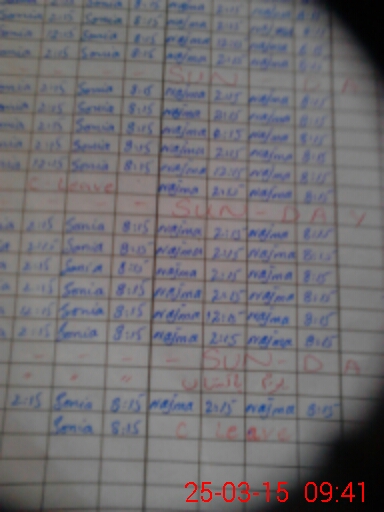 2:15 Sonia 8:15 najma 2:15 najma 8:15
12:15 Sonia 8:15 najma 12:15 najma 8:15
2:15 Sonia 8:15 najma 2:15 najma 8:15
- - - SUN
2:15 Sonia 8:15 najma 2:15 najma 8:15
2:15 Sonia 8:15 najma 2:15 najma 8:15
2:15 Sonia 8:15 najma najma 8:15
2:15 Sonia 8:15 najma 2:15 najma 8:15
12:15 Sonia 8:15 najma 12:15 najma 8:15
C leave najma 2:15 najma 8:15
- - - SUN - DAY
2:15 Sonia 8:15 najma 2:15 najma 8:15
2:15 Sonia 8:15 najma 2:15 najma 8:15
2:15 Sonia 8:15 najma 2:15 najma 8:15
2:15 Sonia 8:15 najma 2:15 najma 8:15
12:15 Sonia 8:15 najma 12:15 najma 8:15
2:15 Sonia 8:15 najma 2:15 najma 8:15
- - - - SUN - DA
2:15 Sonia 8:15 najma 2:15 najma 8:15
Sonia 8:15 C leave
25-03-15 09:41